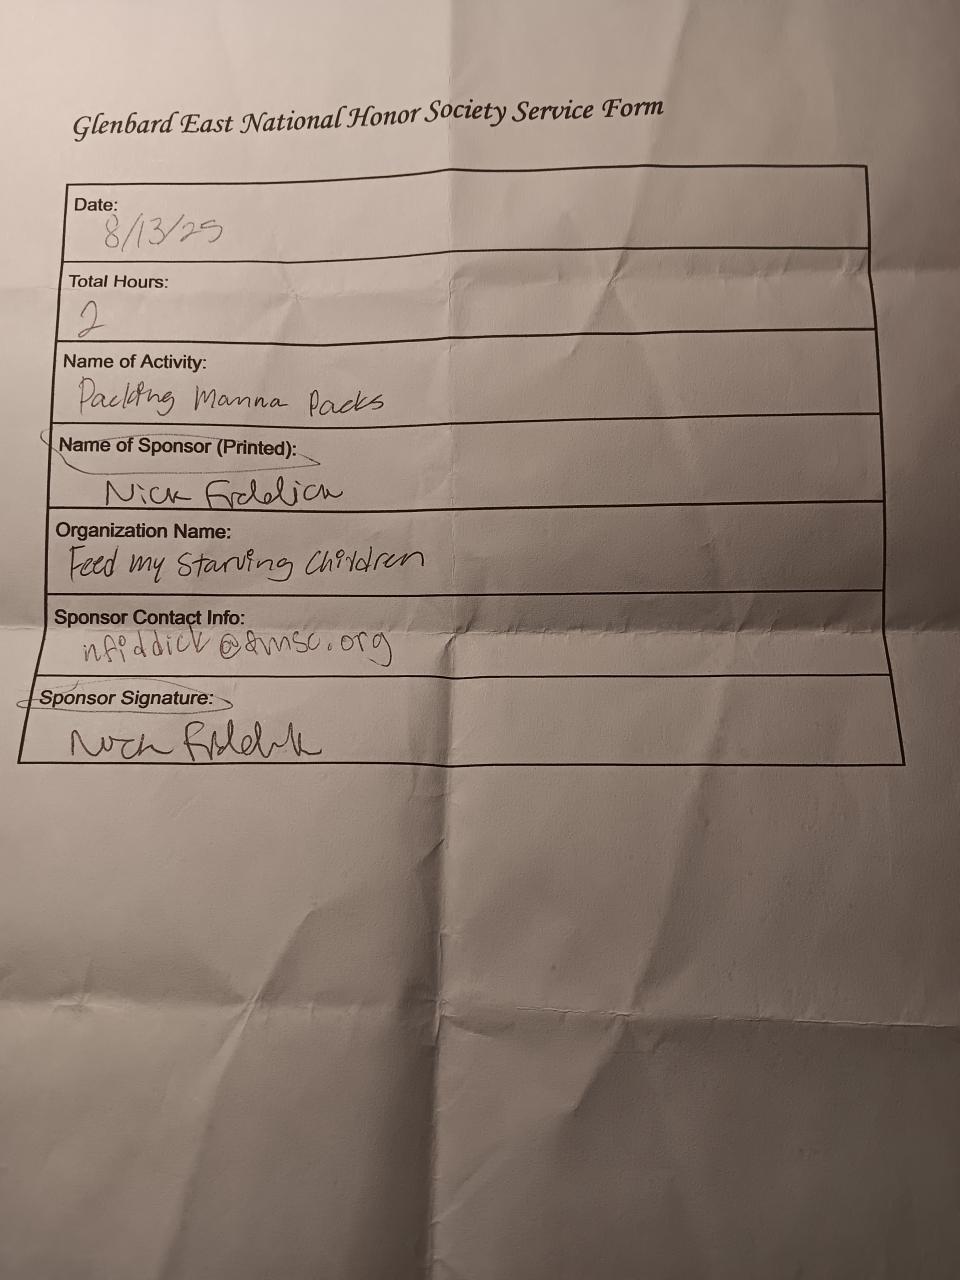 Glenbard East National Honor Society Service Form
Date:
8/13/25
Total Hours:
2
Name of Activity:
Packing Manna Packs
Name of Sponsor (Printed):
Nick
Organization Name:
Feed my Starving Children
Sponsor Contact Info:
nfiddick@fmsc.org
Sponsor Signature:
Nick